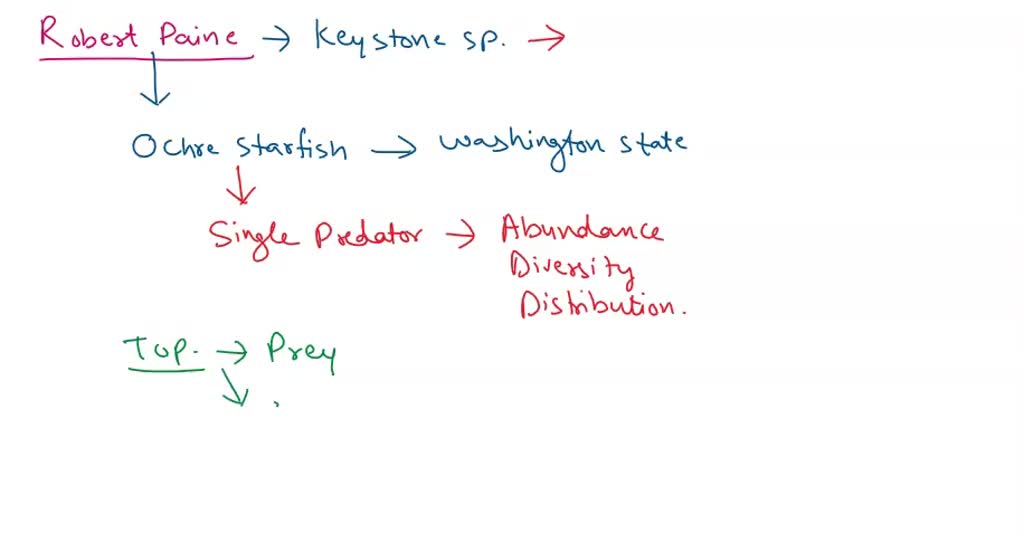 Robert Paine → Keystone sp. →
Ochre starfish → Washington state
Single Predator → Abundance
Diversity
Distribution.
Top. → Prey